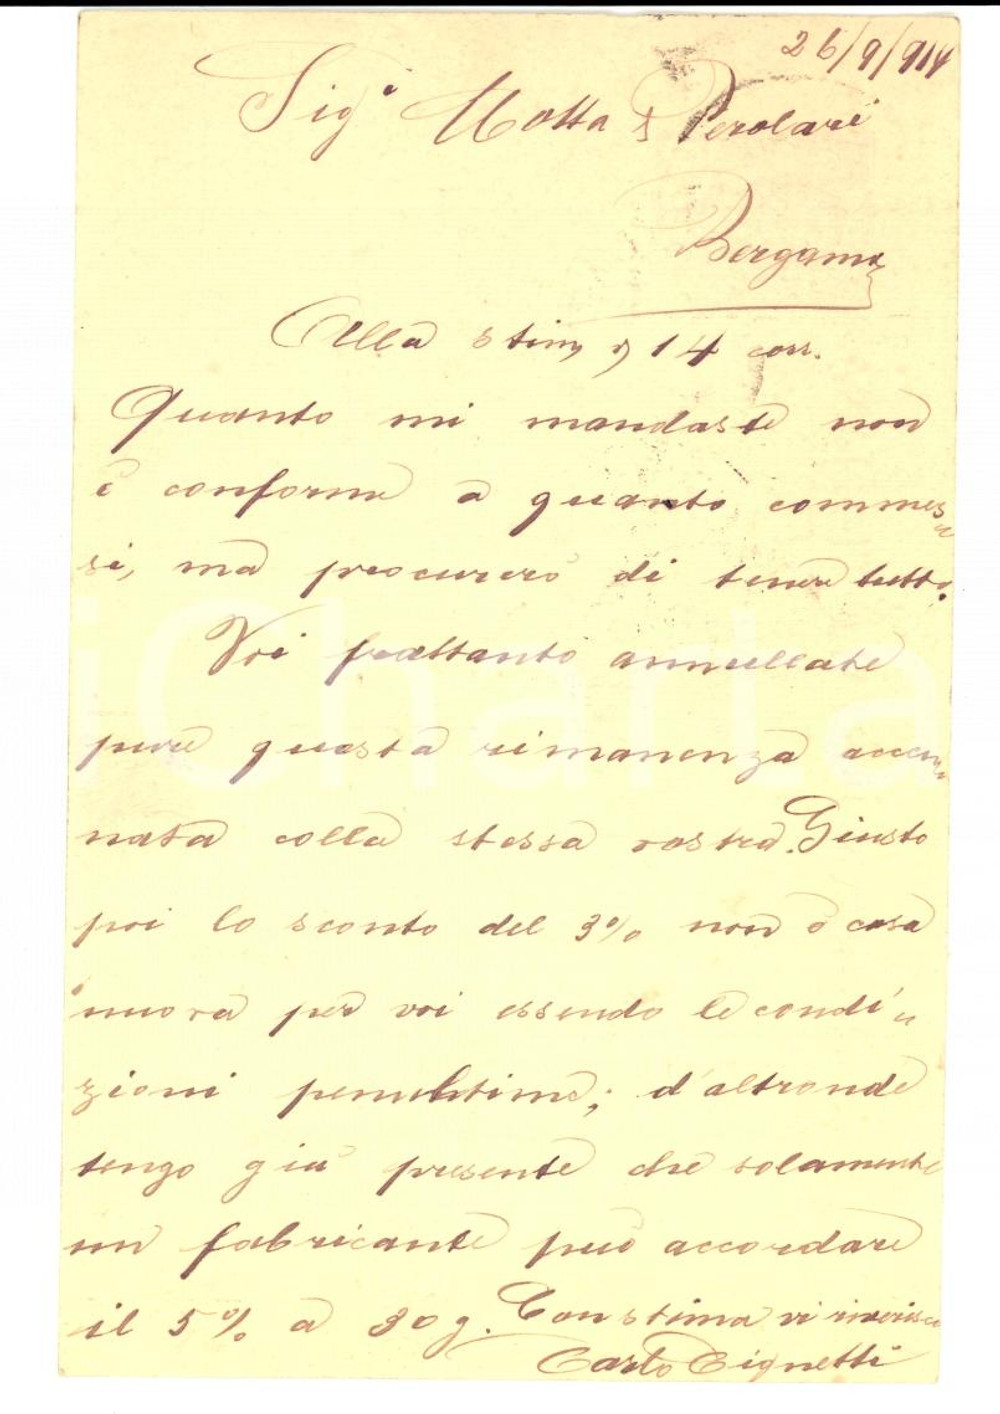 26/9/914
Sig.i Motta & Perolari
Bergamo
Alla stim 14 corr.
Quanto mi mandaste non
è conforme a quanto commes„
si, ma procurerò di tenere tutto.
Voi frattanto annullate
pure questa rimanenza accen„
nata colla stessa vostra. Giusto
poi lo sconto del 3% non è cosa
nuova per voi essendo le condi„
zioni penultime; d'altronde
tengo già presente che solamente
un fabricante può accordare
il 5% a 30 g. Con stima vi riverisco
Carlo